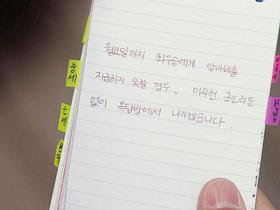 월요일까지 최우승에게 알바비를
지급하지 못할 경우, 아무런 군소리도
없이 옥탑방에서 나가겠습니다.
중세
근세